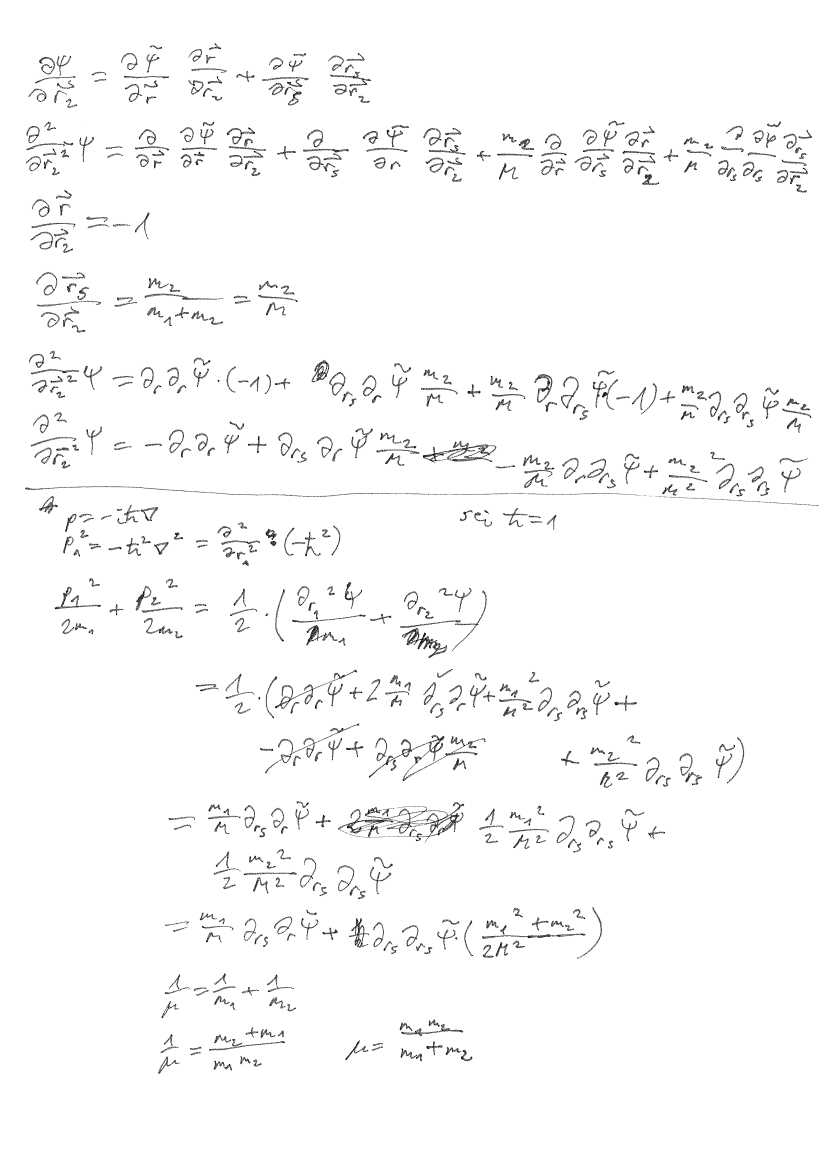 ∂ψ/∂r⃗₂ = ∂ψ̃/∂r⃗ ∂r⃗/∂r⃗₂ + ∂ψ̃/∂r⃗ₛ ∂r⃗ₛ/∂r⃗₂
∂²/∂r⃗₂² ψ = ∂/∂r⃗ ∂ψ̃/∂r⃗ ∂r⃗/∂r⃗₂ + ∂/∂r⃗ₛ ∂ψ̃/∂r ∂r⃗ₛ/∂r⃗₂ + m₂/M ∂/∂r⃗ ∂ψ̃/∂r⃗ₛ ∂r⃗/∂r⃗₂ + m₂/M ∂/∂rₛ ∂ψ̃/∂rₛ ∂r⃗ₛ/∂r⃗₂
∂r⃗/∂r⃗₂ = -1
∂r⃗ₛ/∂r⃗₂ = m₂/(m₁+m₂) = m₂/M
∂²/∂r⃗₂² ψ = ∂ᵣ∂ᵣψ̃·(-1) + ∂ᵣₛ∂ᵣψ̃ m₂/M + m₂/M ∂ᵣ∂ᵣₛψ̃·(-1) + m₂/M ∂ᵣₛ∂ᵣₛψ̃ m₂/M
∂²/∂r⃗₂² ψ = -∂ᵣ∂ᵣψ̃ + ∂ᵣₛ∂ᵣψ̃ m₂/M - m₂/M ∂ᵣ∂ᵣₛψ̃ + m₂²/M² ∂ᵣₛ∂ᵣₛψ̃
p = -iħ∇ sei ħ=1
p₁² = -ħ²∇² = ∂²/∂r₁² · (-ħ²)
p₁²/2m₁ + p₂²/2m₂ = 1/2 · (∂ᵣ₁²ψ/m₁ + ∂ᵣ₂²ψ/)
= 1/2 · (∂ᵣ∂ᵣψ̃ + 2 m₁/M ∂ᵣₛ∂ᵣψ̃ + m₁²/M² ∂ᵣₛ∂ᵣₛψ̃ +
-∂ᵣ∂ᵣψ̃ + ∂ᵣₛ∂ᵣψ̃ m₂/M + m₂²/M² ∂ᵣₛ∂ᵣₛ ψ̃)
= m₁/M ∂ᵣₛ∂ᵣψ̃ + 1/2 m₁²/M² ∂ᵣₛ∂ᵣₛψ̃ +
1/2 m₂²/M² ∂ᵣₛ∂ᵣₛψ̃
= m₁/M ∂ᵣₛ∂ᵣψ̃ + ∂ᵣₛ∂ᵣₛψ̃·((m₁²+m₂²)/2M²)
1/μ = 1/m₁ + 1/m₂
1/μ = (m₂+m₁)/(m₁m₂) μ = m₁m₂/(m₁+m₂)